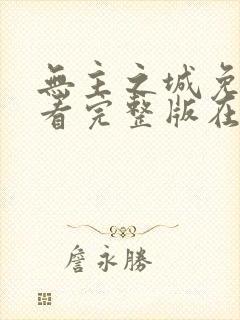 無主之城免
看完整版在
詹永勝